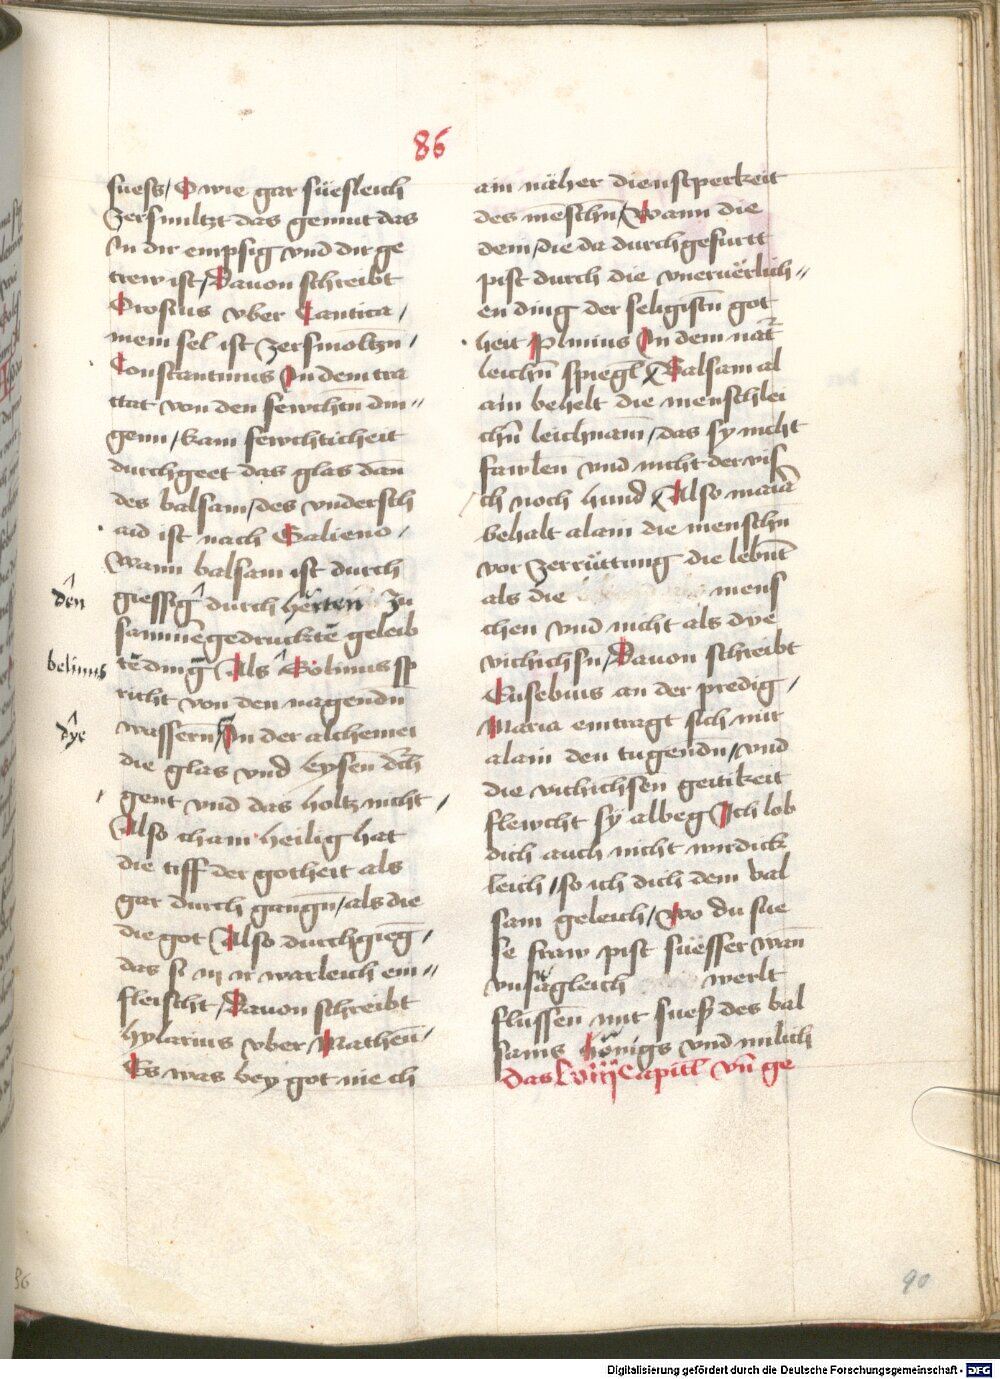 86
suess / O wie gar süesleich
Zersmiltzt das gemut das
In dir empsig vnd dir ge
trew ist / Dauon schreibt
Orosius vber Cantica /
mein sel ist zersmoltzn̄ /
Constantinus In dem tra
ctat von den fewchtn̄ din〃
genn / kain fewchticheit
durchgeet das glas dan̄
des balsam / des vndersch
aid ist nach Galieno /
Wann balsam ist durch
den
giessig^ durch herten zu
samm̄egedruckte geleib
belinus
tē ding Als^ Solinus sp
richt von den nagendn̄
dye
wassern̄ In der alchemei
die glas vnd eysen durch
gent vnd das holtz nicht /
Also cham heilig hat
die tiff der gotheit als
gar durch gangn̄ / als die
die got Also durchgieng /
das si in ir warleich ein〃
fleischt / Dauon schreibt
hylarius vber Matheū /
Es was bey got nie ch
ain näher dienstperkeit
des mēschn̄ / Wann die
dein / die da durchgefurtt
pist durch die vneruerlich〃
en ding der seligistn̄ got
heit Plinius In dem nat
leichn̄ spiegl Balsam al
ain behelt die menschlei
chn̄ leichnam̄ / das sy nicht
fawlen vnd nicht der vis
ch noch hund Also maria
behalt alain die menschn̄
vor zerrüttung die lebnt
als die mens
chen vnd nicht als dye
vichichsn̄ / Dauon schreibt
Eusebius an der predig /
Maria eintragt sich mit
alain den tugendn̄ / vnd
die vichichsen geitikeit
flewcht sy albeg Ich lob
dich auch nicht wirdick
leich / so ich dich dem bal
sam geleich / Wo du sue
se fraw pist süesser wan̄
vnsägleich werlt
flüssen mit suess des bal
sams hönigs vnd milich
Das Lviij Capitl vn̄ ge
86
90
Digitalisierung gefördert durch die Deutsche Forschungsgemeinschaft - DFG